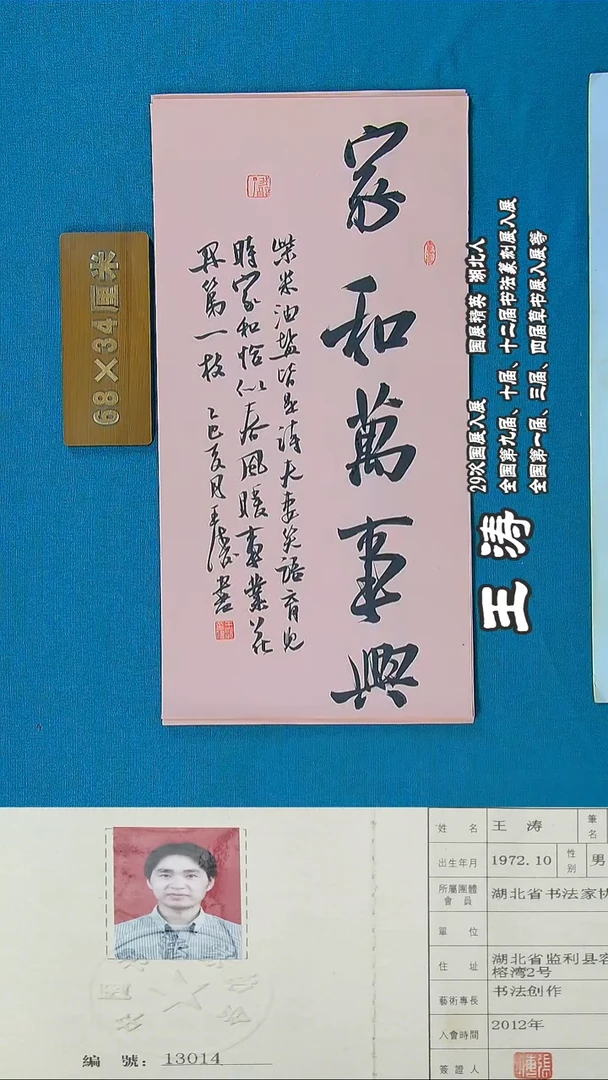 家和萬事興
柴米油盐皆是诗夫妻笑語育儿
時家和恰似春風暖事業花
開第一枝 乙巳夏月王濤書
68×34厘米
29次国展入展 国展精英 湖北人
全国第九届、十届、十二届书法篆刻展入展
全国第一届、三届、四届草书展入展等
王涛
編 號：13014
姓 名 王 涛 筆名
出生年月 1972.10 性别 男
所屬團體會員 湖北省书法家协
單 位
住 址 湖北省监利县容
榕湾2号
藝術專長 书法创作
入會時間 2012年
簽證人